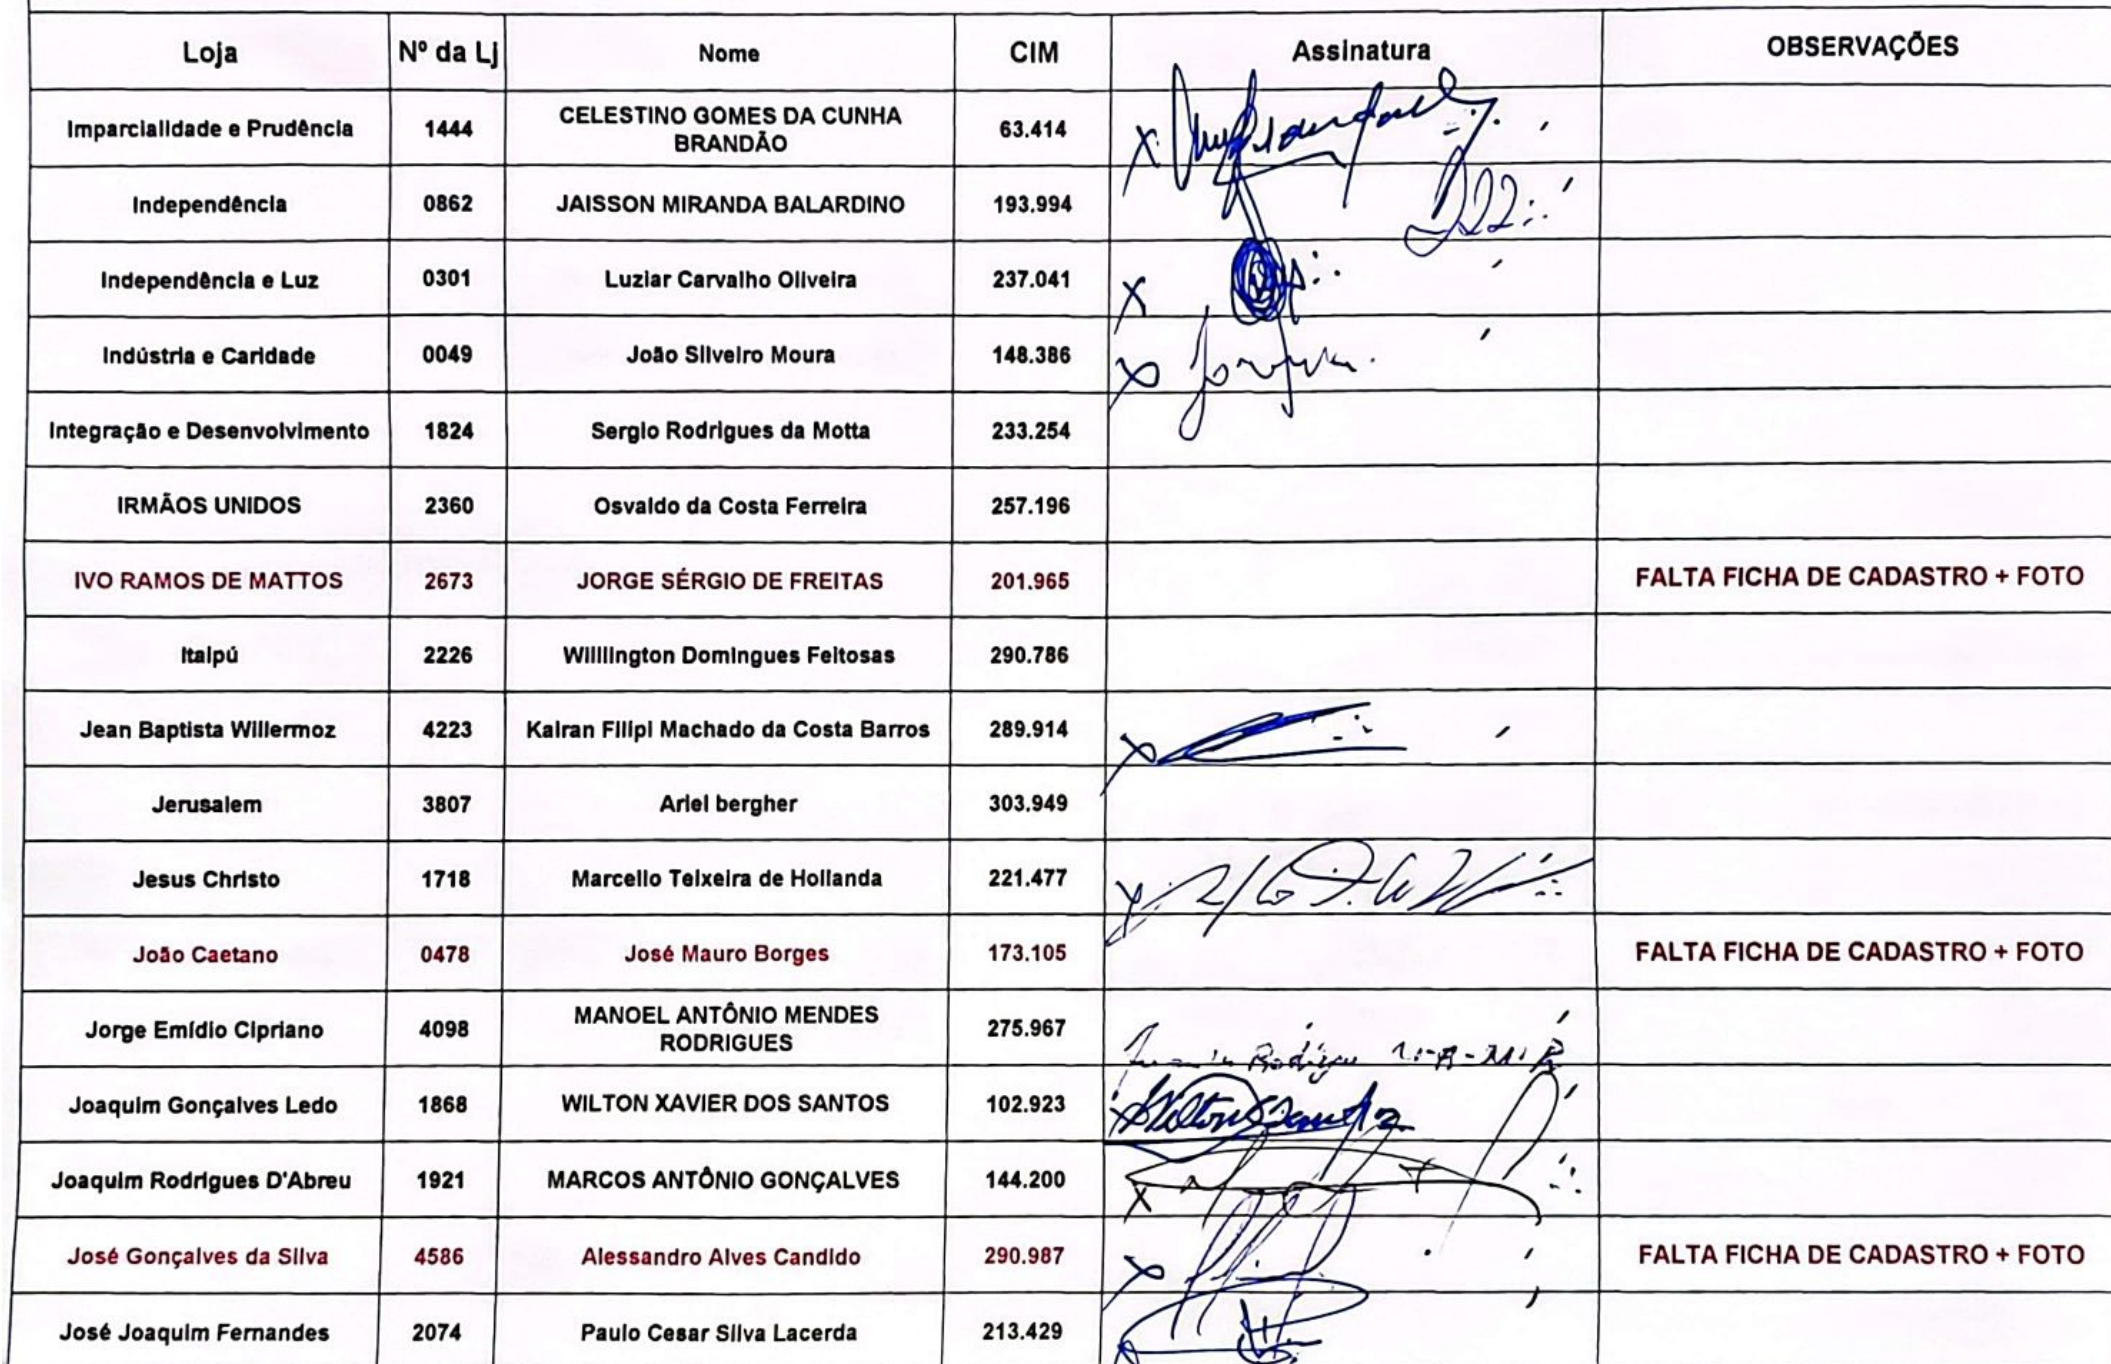 Loja Nº da Lj Nome CIM Assinatura OBSERVAÇÕES
Imparcialidade e Prudência 1444 CELESTINO GOMES DA CUNHA BRANDÃO 63.414
Independência 0862 JAISSON MIRANDA BALARDINO 193.994
Independência e Luz 0301 Luziar Carvalho Oliveira 237.041
Indústria e Caridade 0049 João Silveiro Moura 148.386
Integração e Desenvolvimento 1824 Sergio Rodrigues da Motta 233.254
IRMÃOS UNIDOS 2360 Osvaldo da Costa Ferreira 257.196
IVO RAMOS DE MATTOS 2673 JORGE SÉRGIO DE FREITAS 201.965 FALTA FICHA DE CADASTRO + FOTO
Itaipú 2226 Willlington Domingues Feitosas 290.786
Jean Baptista Willermoz 4223 Kairan Filipi Machado da Costa Barros 289.914
Jerusalem 3807 Ariel bergher 303.949
Jesus Christo 1718 Marcello Teixeira de Hollanda 221.477
João Caetano 0478 José Mauro Borges 173.105 FALTA FICHA DE CADASTRO + FOTO
Jorge Emídio Cipriano 4098 MANOEL ANTÔNIO MENDES RODRIGUES 275.967
Joaquim Gonçalves Ledo 1868 WILTON XAVIER DOS SANTOS 102.923
Joaquim Rodrigues D'Abreu 1921 MARCOS ANTÔNIO GONÇALVES 144.200
José Gonçalves da Silva 4586 Alessandro Alves Candido 290.987 FALTA FICHA DE CADASTRO + FOTO
José Joaquim Fernandes 2074 Paulo Cesar Silva Lacerda 213.429